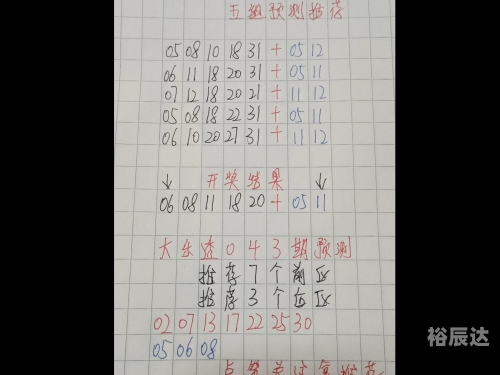 五组预测推荐
05 08 10 18 31 + 05 12
06 11 18 20 31 + 05 11
07 12 18 20 21 + 11 12
05 08 18 22 31 + 05 11
06 10 20 27 31 + 11 12
↓ 开奖结果 ↓
06 08 11 18 20 + 05 11
大乐透043期预测
推荐7个前区
推荐3个后区
02 07 13 17 22 25 30
05 06 08
裕辰达